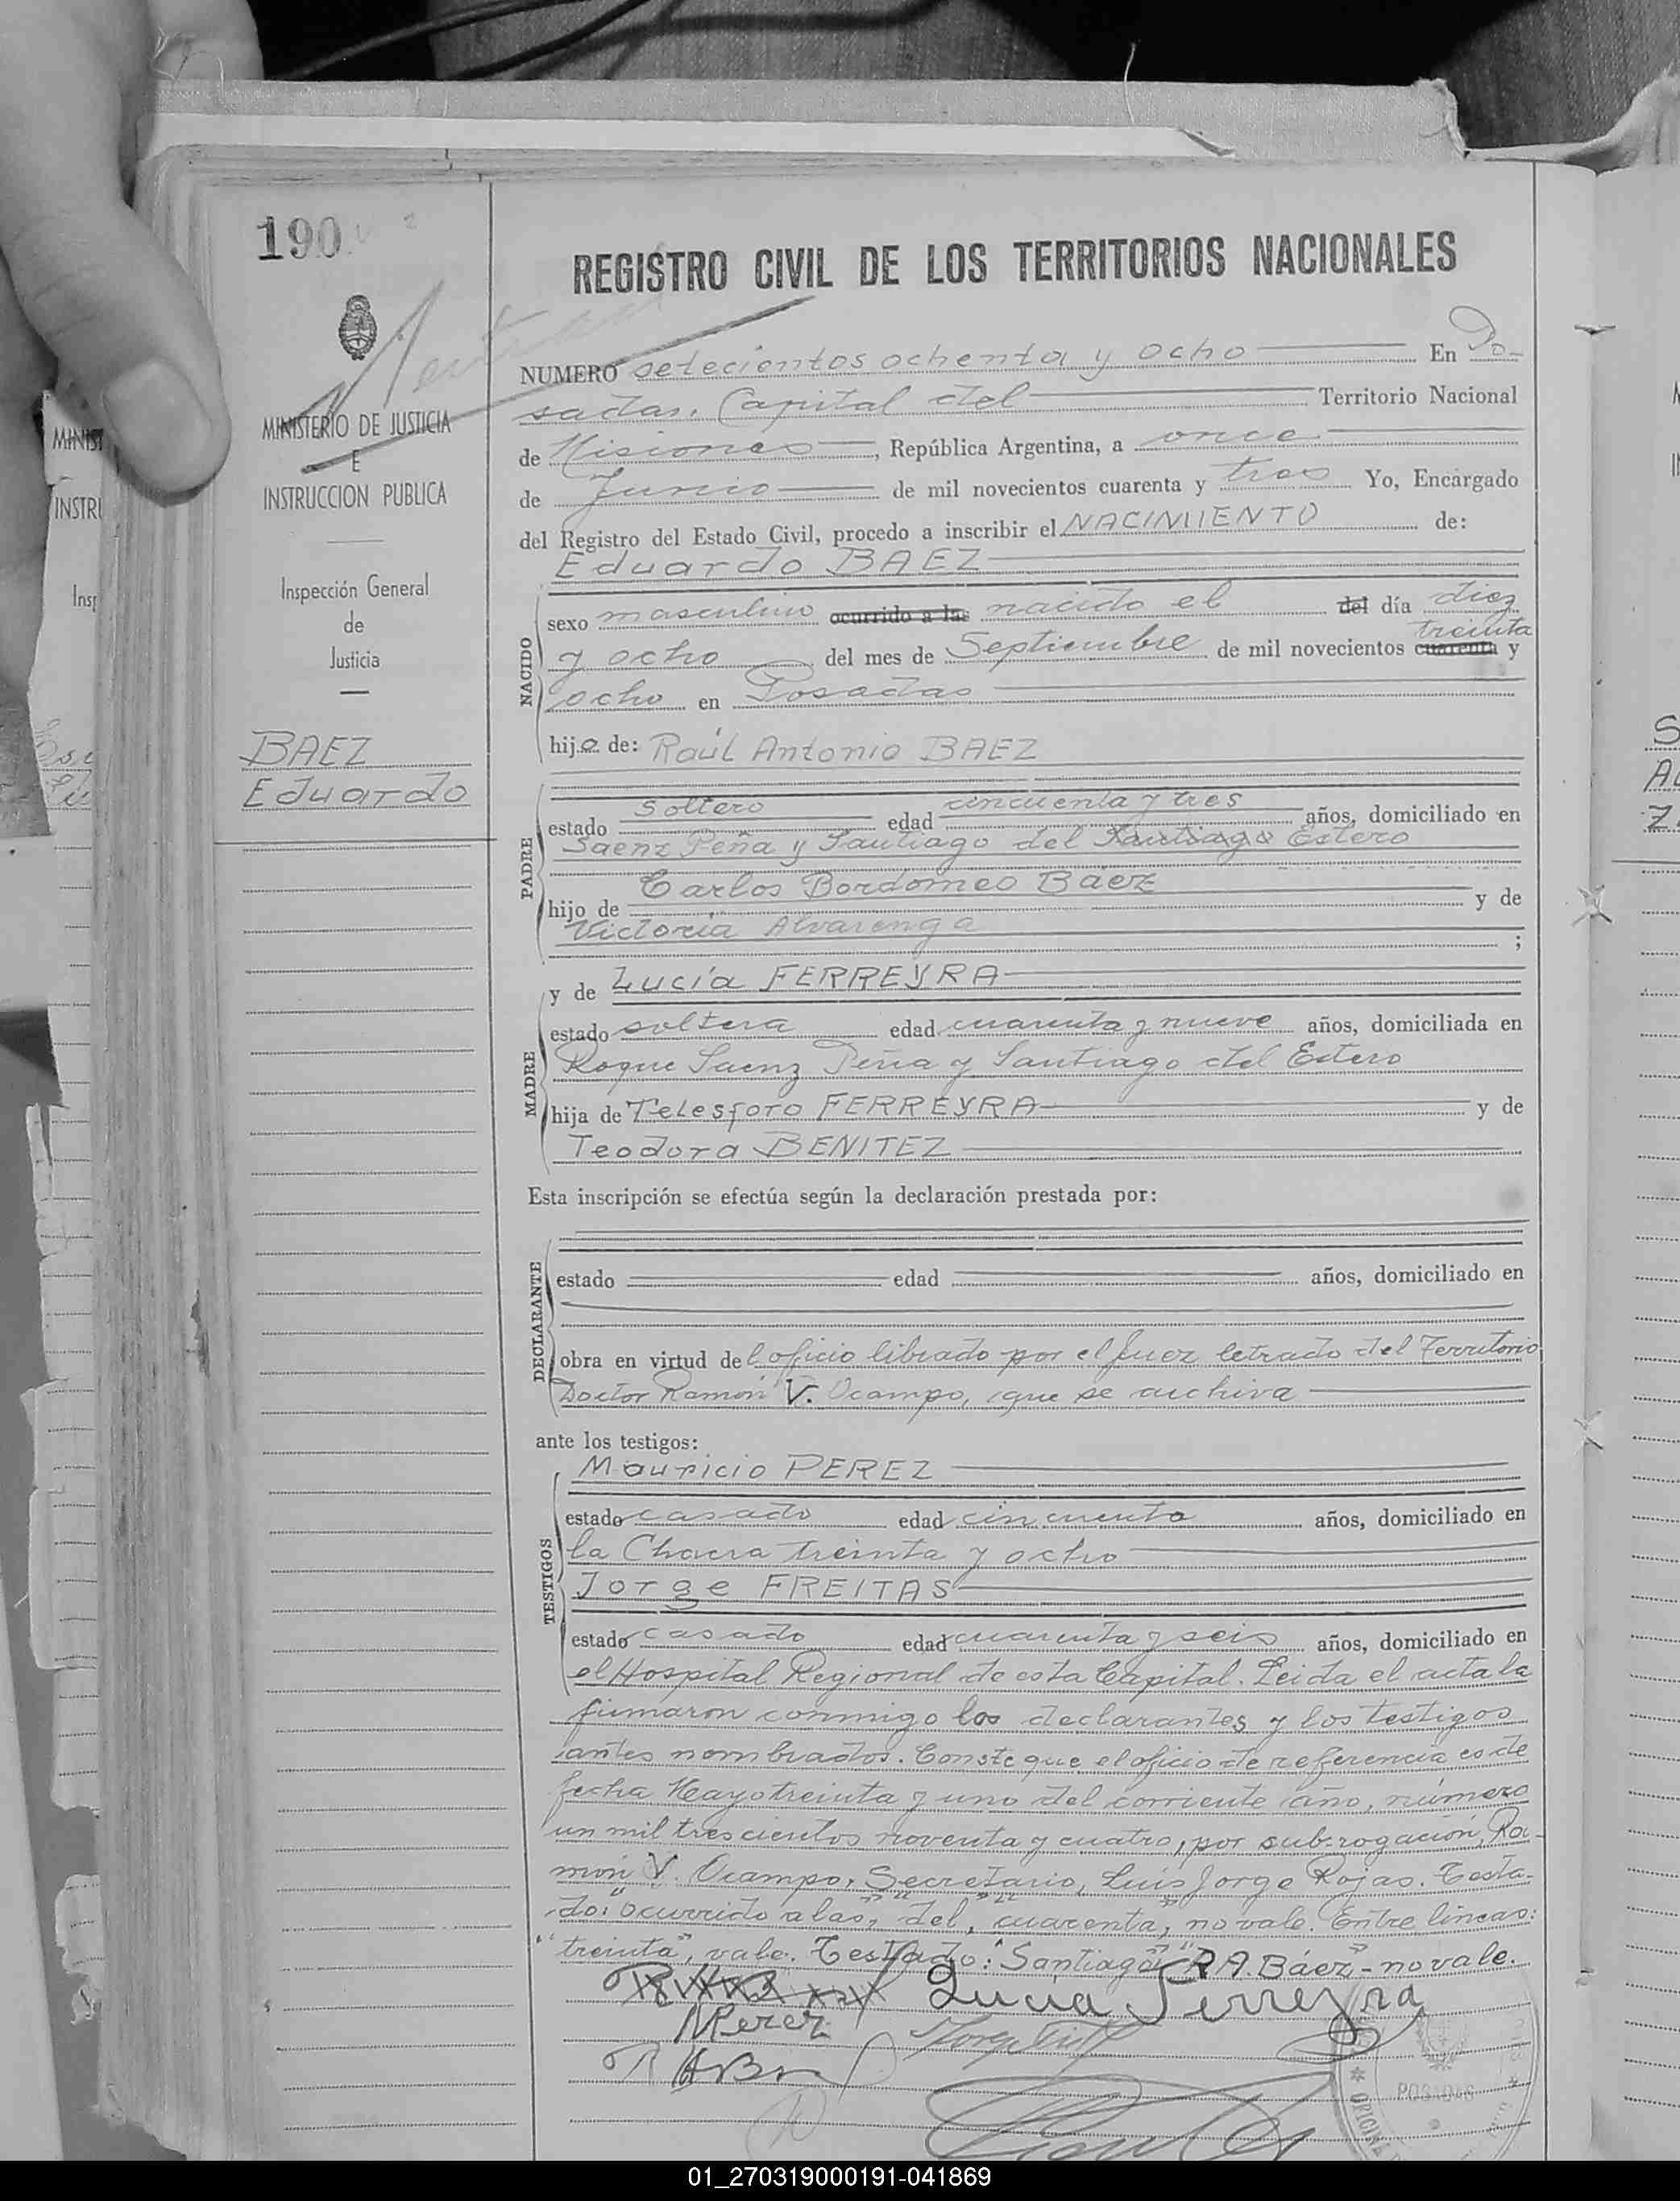 190
REGISTRO CIVIL DE LOS TERRITORIOS NACIONALES
MINISTERIO DE JUSTICIA
E
INSTRUCCION PUBLICA
Inspección General
de
Justicia
BAEZ
Eduardo
NUMERO setecientos ochenta y ocho En Po-
sadas, Capital del Territorio Nacional
de Misiones, República Argentina, a once
de Junio de mil novecientos cuarenta y tres Yo, Encargado
del Registro del Estado Civil, procedo a inscribir el NACIMIENTO de:
Eduardo BAEZ
NACIDO
sexo masculino ocurrido a las nacido el del día diez
treinta
y ocho del mes de Septiembre de mil novecientos cuarenta y
ocho en Posadas
hijo de: Raúl Antonio BAEZ
PADRE
estado soltero edad cincuenta y tres años, domiciliado en
Saenz Peña y Santiago del Santiago Estero
hijo de Carlos Bordomeo Báez y de
Victoria Alvarenga ;
y de Lucía FERREYRA
MADRE
estado soltera edad cuarenta y nueve años, domiciliada en
Roque Saenz Peña y Santiago del Estero
hija de Telesforo FERREYRA y de
Teodora BENITEZ
Esta inscripción se efectúa según la declaración prestada por:
DECLARANTE
estado edad años, domiciliado en
obra en virtud del oficio librado por el Juez letrado del Territorio
Doctor Ramón V. Ocampo, que se archiva
ante los testigos:
TESTIGOS
Mauricio PEREZ
estado casado edad cincuenta años, domiciliado en
la Chacra treinta y ocho
Jorge FREITAS
estado casado edad cuarenta y seis años, domiciliado en
el Hospital Regional de esta Capital. Leida el acta la
firmaron conmigo los declarantes y los testigos
antes nombrados. Conste que el oficio de referencia es de
fecha Mayo treinta y uno del corriente año, número
un mil trescientos noventa y cuatro, por subrogación, Ra-
món V. Ocampo, Secretario, Luis Jorge Rojas. Testa-
do: "ocurrido a las", "del", "cuarenta", no vale. Entre líneas:
"treinta", vale. Testado: "Santiago" "R A. Báez" - no vale.
Lucia Ferreyra
MPerez
POSADAS
01_270319000191-041869